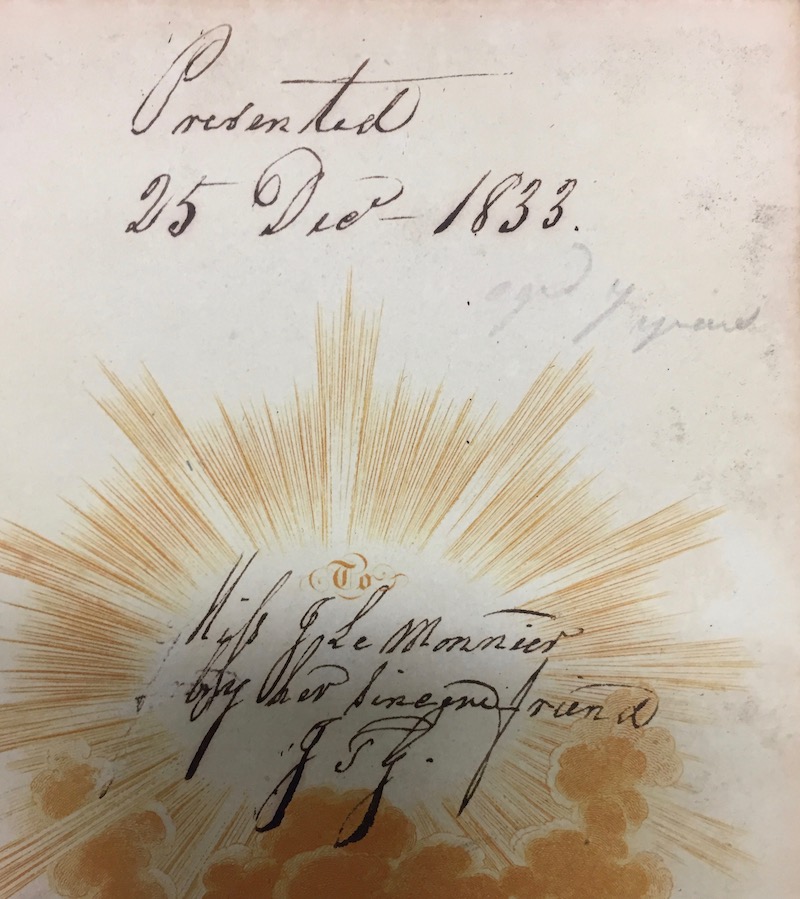 Presented
25 Decr 1833.
aged 7 years
To
Miss J Le Monnier
by her sincere friend
J S G.